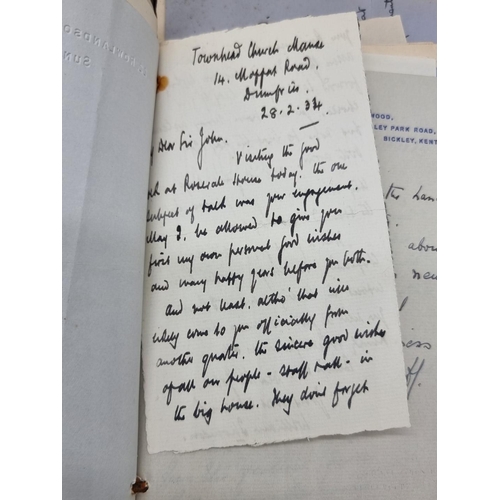 Townhead Church Manse
14. Moffat Road.
Dumfries.
28.2.34
Dear Sir John.
Visiting the good
at Rosevale House today. the one
subject of talk was your engagement.
May I. be allowed to give you
first my own personal good wishes
and many happy years before you both.
and not least. altho' that will
likely come to you officially from
another quarter. the sincere good wishes
of all our people - staff - in
the big house. They don't forget
WOOD,
LEY PARK ROAD,
BICKLEY, KENT
the
abou
new
ness
SUN